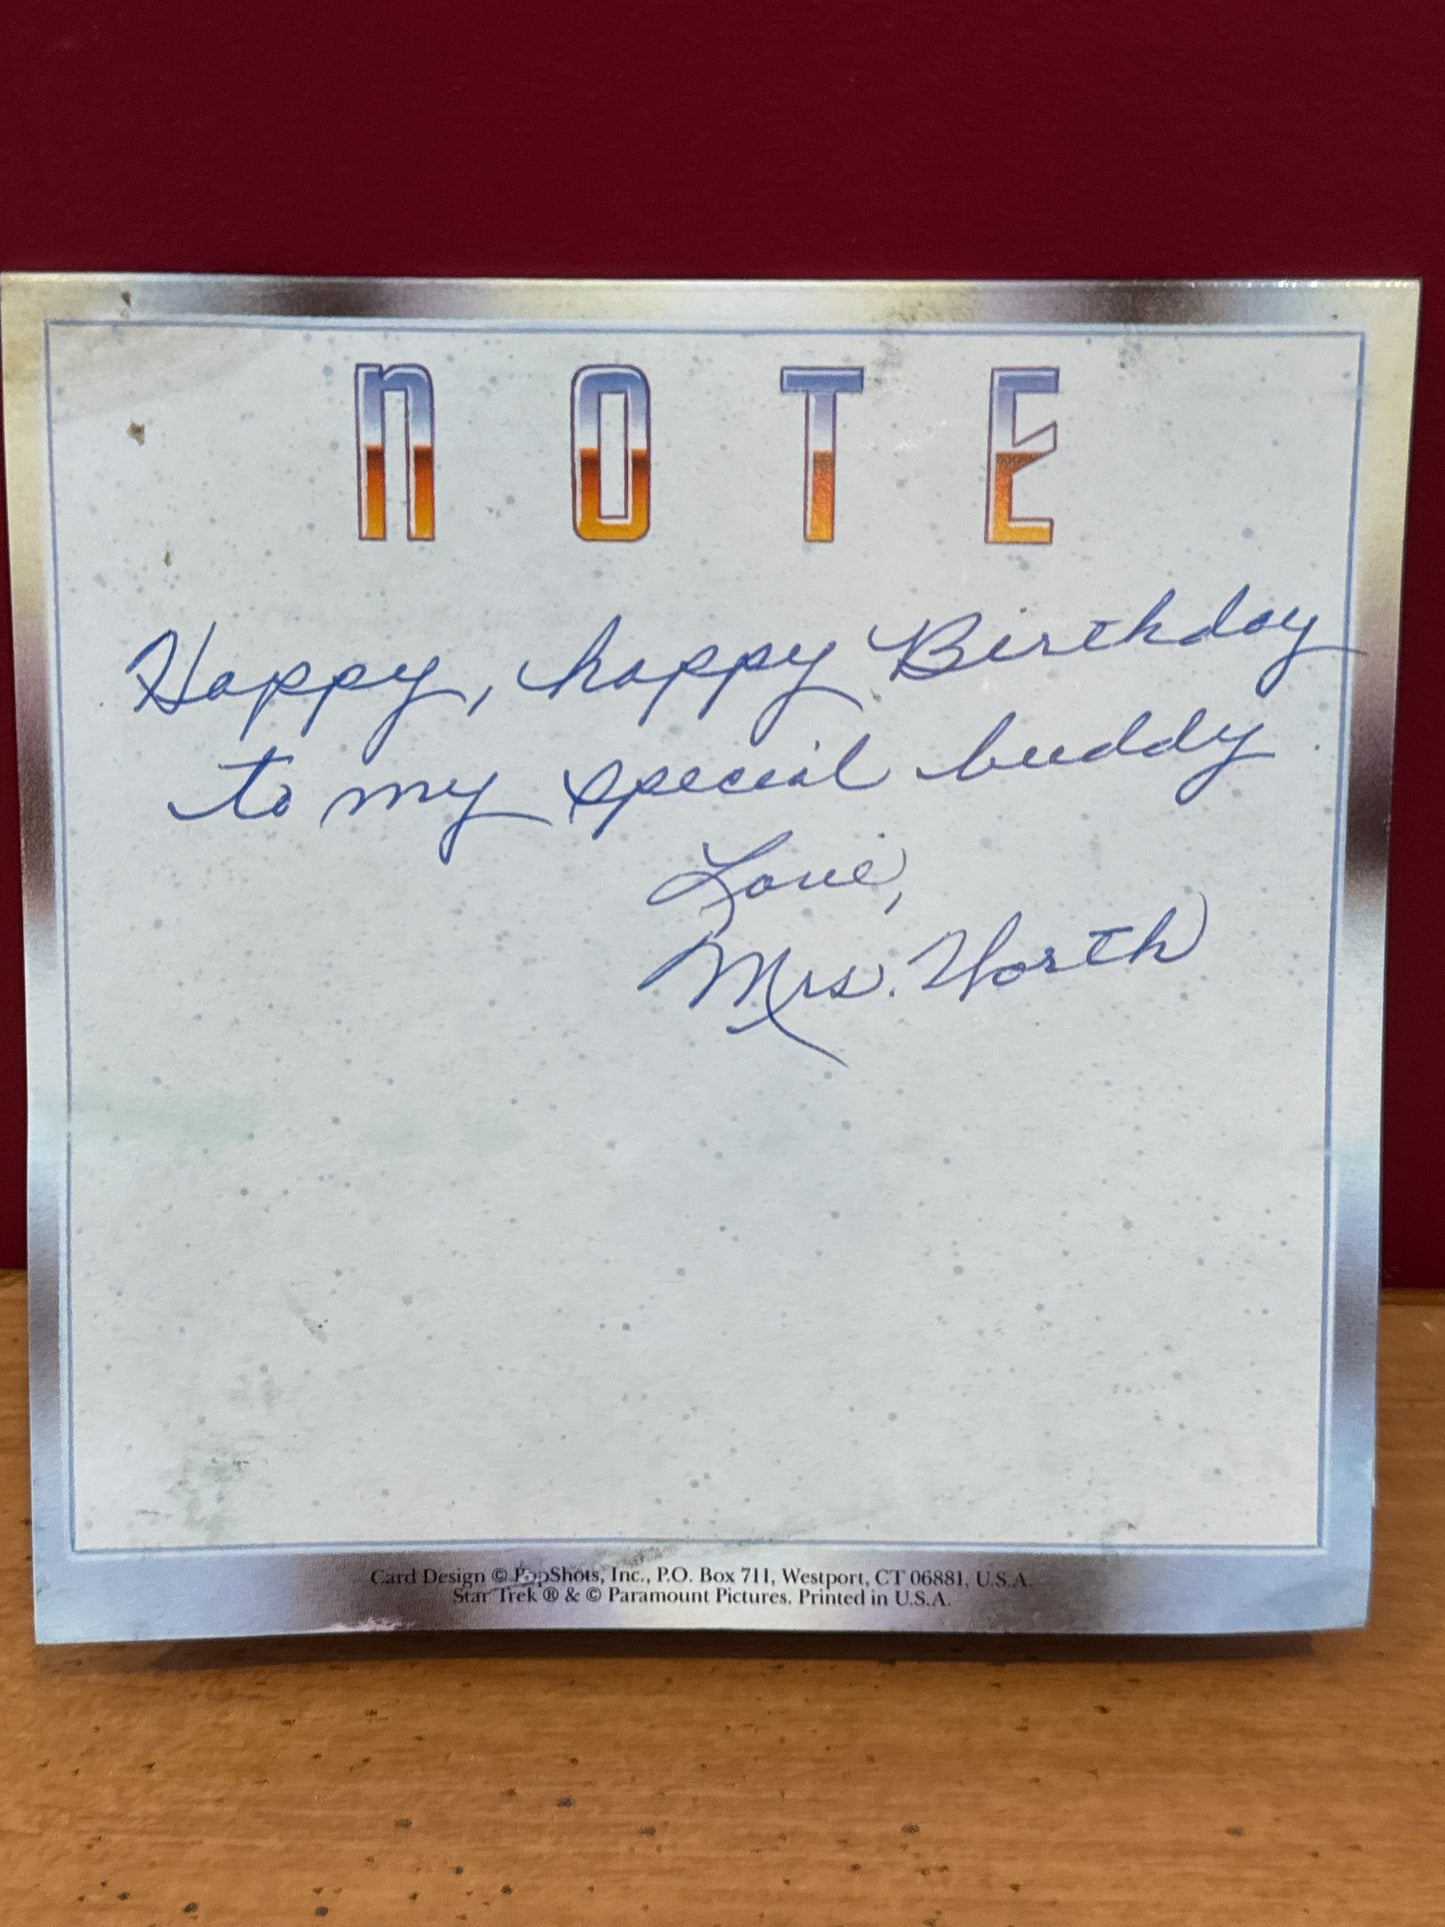 NOTE
Happy, happy Birthday
to my special buddy
Love,
Mrs. North
Card Design © PopShots, Inc., P.O. Box 711, Westport, CT 06881, U.S.A.
Star Trek ® & © Paramount Pictures. Printed in U.S.A.